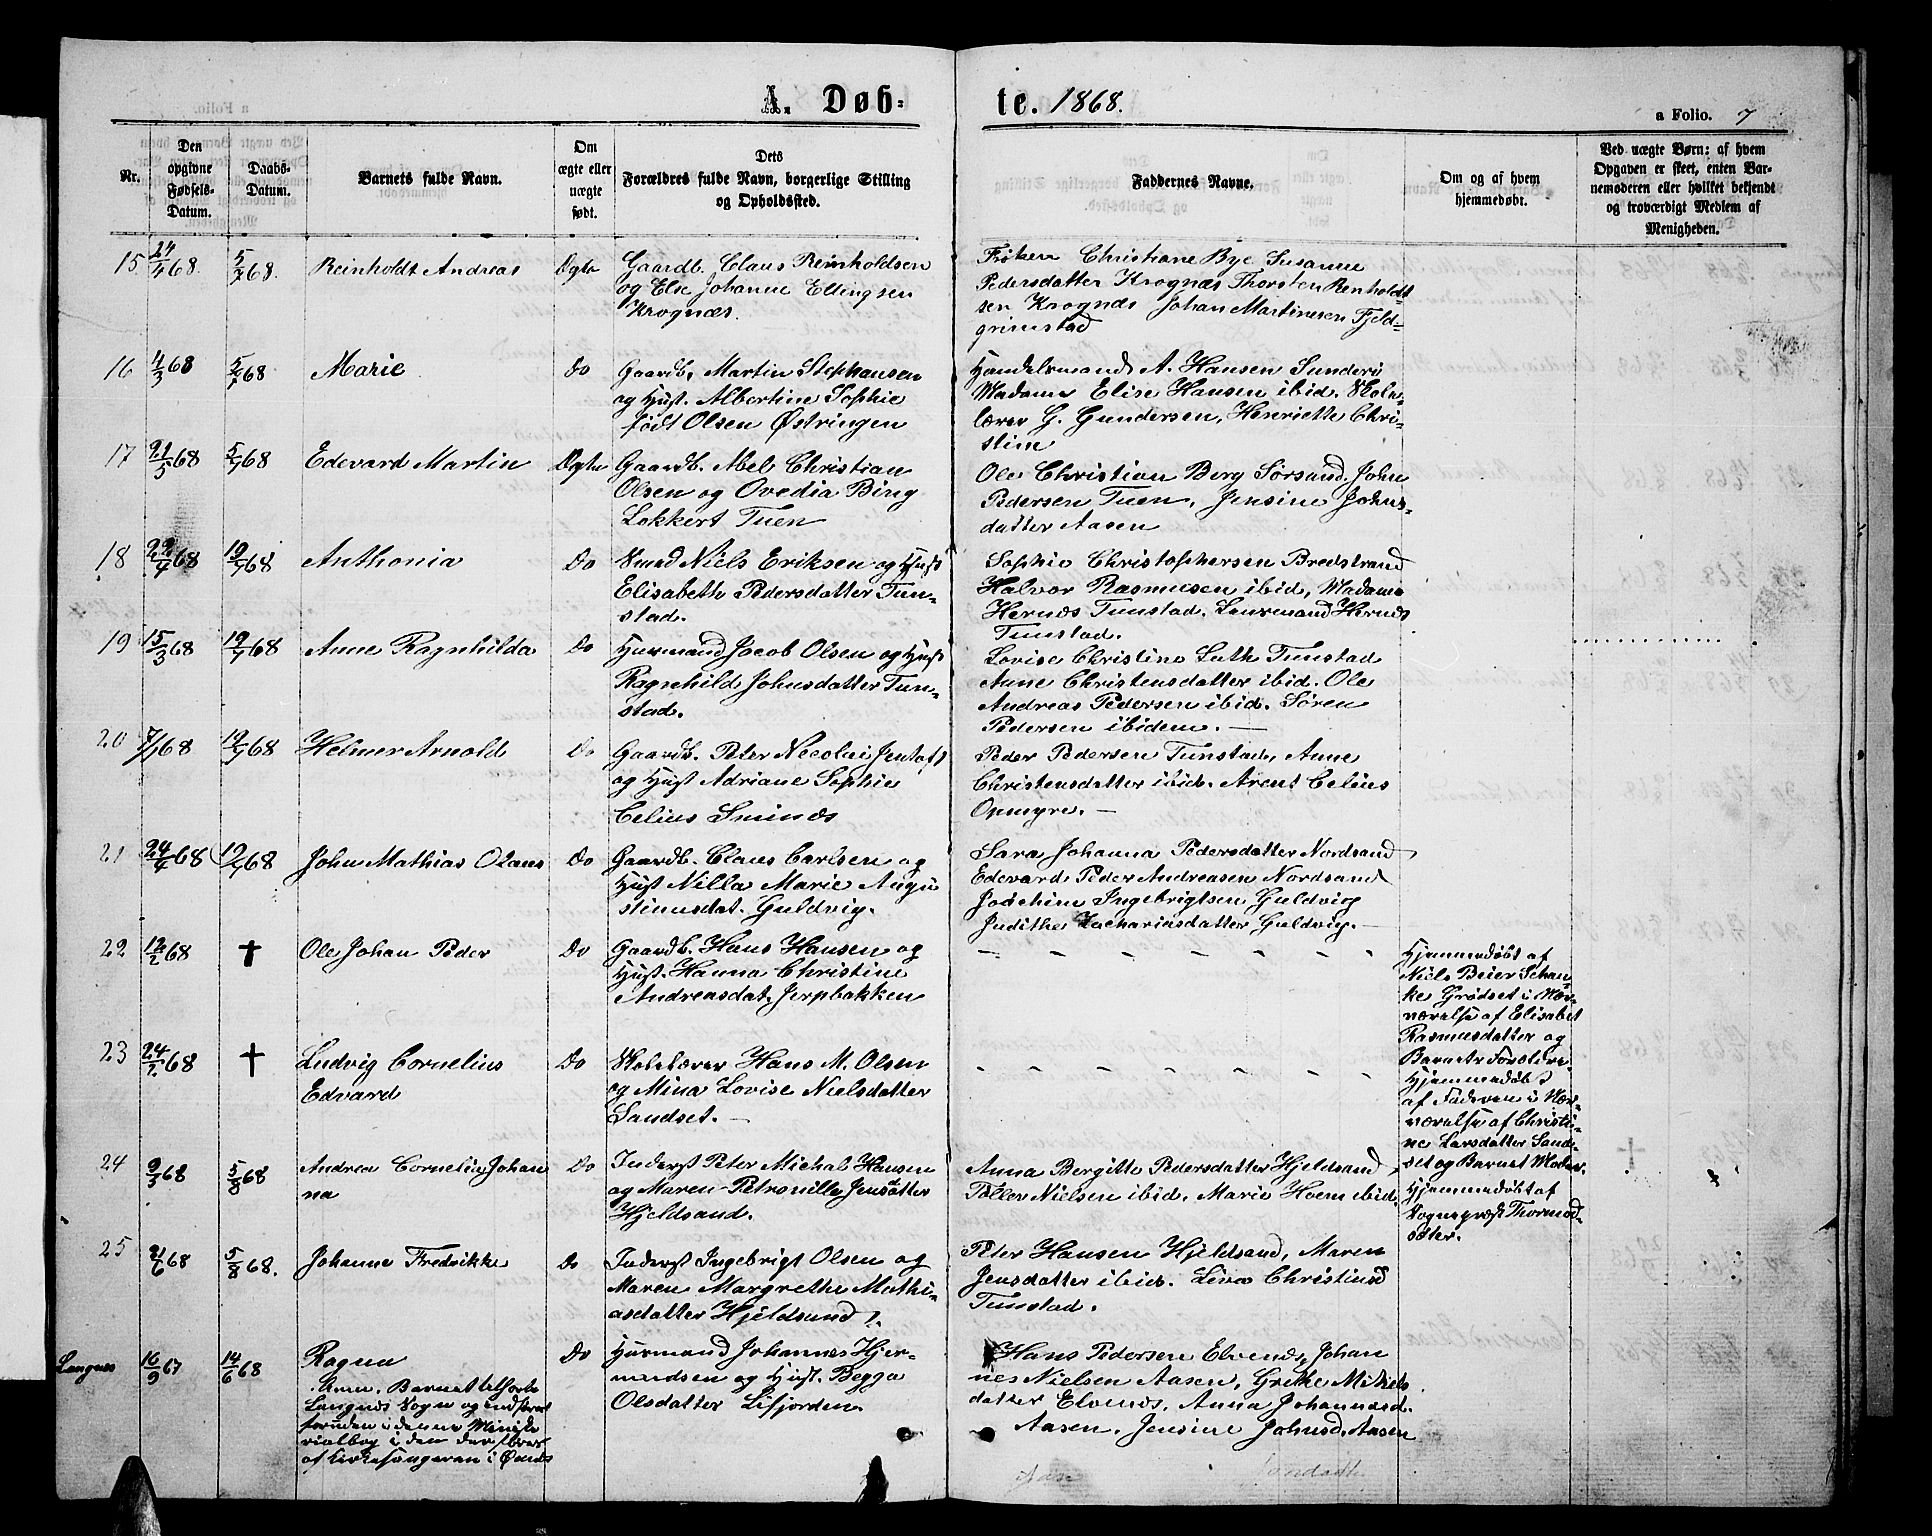 A. Døb-
te. 1868.
a Folio. 7
Nr.
Den
opgivne
Fødsels-
Datum.
Daabs-
Datum.
Barnets fulde Navn.
Om
ægte eller
uægte
født.
Dets
Forældres fulde Navn, borgerlige Stilling
og Opholdssted.
Faddernes Navne.
Om og af hvem
hjemmedøbt.
Ved uægte Børn: af hvem
Opgaven er skeet, enten Bar-
nemoderen eller hvilket bekjendt
og troværdigt Medlem af
Menigheden.
15 24/4 68. 5/7 68. Reinholdt Andreas Ægte
Gaardb. Claus Reinholdsen
og Else Johanne Ellingsen
Krognæs.
Frøken Christiane Bye Susanne
Pedersdatter Krognæs Thorsten Renholdt-
sen Krognæs Johan Martinesen Fjeld-
grimstad
16 4/3 68 5/7 68 Marie Do
Gaardb. Martin Stephansen
og Hust. Albertine Sophie
født Olsen Østringen
Handelsmand A. Hansen Sunderø
Madame Elise Hansen ibid. Skole-
lærer G. Gundersen, Henriette Chri-
stine
17 21/5 68 5/7 68 Edevard Martin Ægte
Gaardb. Abel Christian
Olsen og Ovedia Bing
Lokkert Tuen
Ole Christian Berg Sørsand, John
Pedersen Tuen, Jensine Johns-
datter Aasen
18 22/4 68 19/7 68 Anthonia Do
Smed Niels Eriksen og Hust
Elisabeth Pedersdatter Tun-
stad.
Sophie Christophersen Bredstrand
Halvor Rasmusen ibid, Madame
Hernæs Tunstad. Hernæs
Tunstad.
19 15/3 68 19/7 68 Anne Ragnhilda Do
Husmand Jacob Olsen og Hust
Ragnhild Johnsdatter Tun-
stad.
Lovise Christine Luth Tunstad
Anne Christensdatter ibid. Ole
Andreas Pedersen ibid. Søren
Pedersen ibidem. —
20 7/1 68 19/7 68 Helmer Arnold Do
Gaardb. Peter Nicolai Jentoft
og Hust Adriane Sophie
Celius Sminæs
Peder Pedersen Tunstad, Anne
Christensdatter ibid. Arent Celius
Opmyre. —
21 24/4 68 19/7 68 John Mathias Olaus Do
Gaardb. Claus Carlsen og
Hust Nilla Marie Augu
stinusdat. Guldvig.
Sara Johanna Pedersdatter Nordsand
Edevard Peder Andreasen Nordsand
Joachim Ingebrigtsen Guldvig
Judithe Zachariasdatter Guldvig. —
22 12/2 68 † Ole Johan Peder Do
Gaardb. Hans Hansen og
Hust. Hanna Christine
Andreasdat. Jerpbakken
Hjemmedøbt af
Niels Beier Schan-
ke Grødset i Nær-
værelse af Elisabet
Rasmusdatter og
Barnets Forældre.
23 24/7 68 † Ludvig Cornelius
Edvard
Do
Skolelærer Hans M. Olsen
og Mina Lovise Nielsdatter
Sandset. —
Hjemmedøbt
af Faderen i Nær-
værelse af Christi-
ne Larsdatter Sand-
set og Barnets Moder.
24 9/3 68 5/8 68 Andrea Cornelia Johan
na
Do
Inderst Peter Michal Hansen
og Maren Petronille Jensdatter
Hjeldsand.
Anna Bergitte Pedersdatter Hjeldsand,
Toller Nielsen ibid. Marie Hoem ibid.
Hjemmedøbt af
Sognepræst Thormod-
sæter.
25 21/6 68 5/8 68. Johanne Fredrikke Do
Inderst Ingebrigt Olsen og
Maren Margrethe Mathi-
asdatter Hjeldsand
Peter Hansen Hjeldsand, Maren
Jensdatter ibid. Lina Christiansd
Tunstad.
Langnes 16/9 67 14/6 68 Ragna
Anm. Barnet tilhører
Langnæs Sogn og indført
foruden i denne Ministe
rialbog i den der føres
af Kirkesangeren i Øxnæs
Do
Husmand Johannes Hjer-
mundsen og Hust. Begga
Olsdatter Lifjorden.
Hans Pedersen Elvenæs, Johan
nes Nielsen Aasen, Grethe Mikels
datter Elvenæs, Anna Johannesd.
Aasen, Jensine Johnsd. Aasen